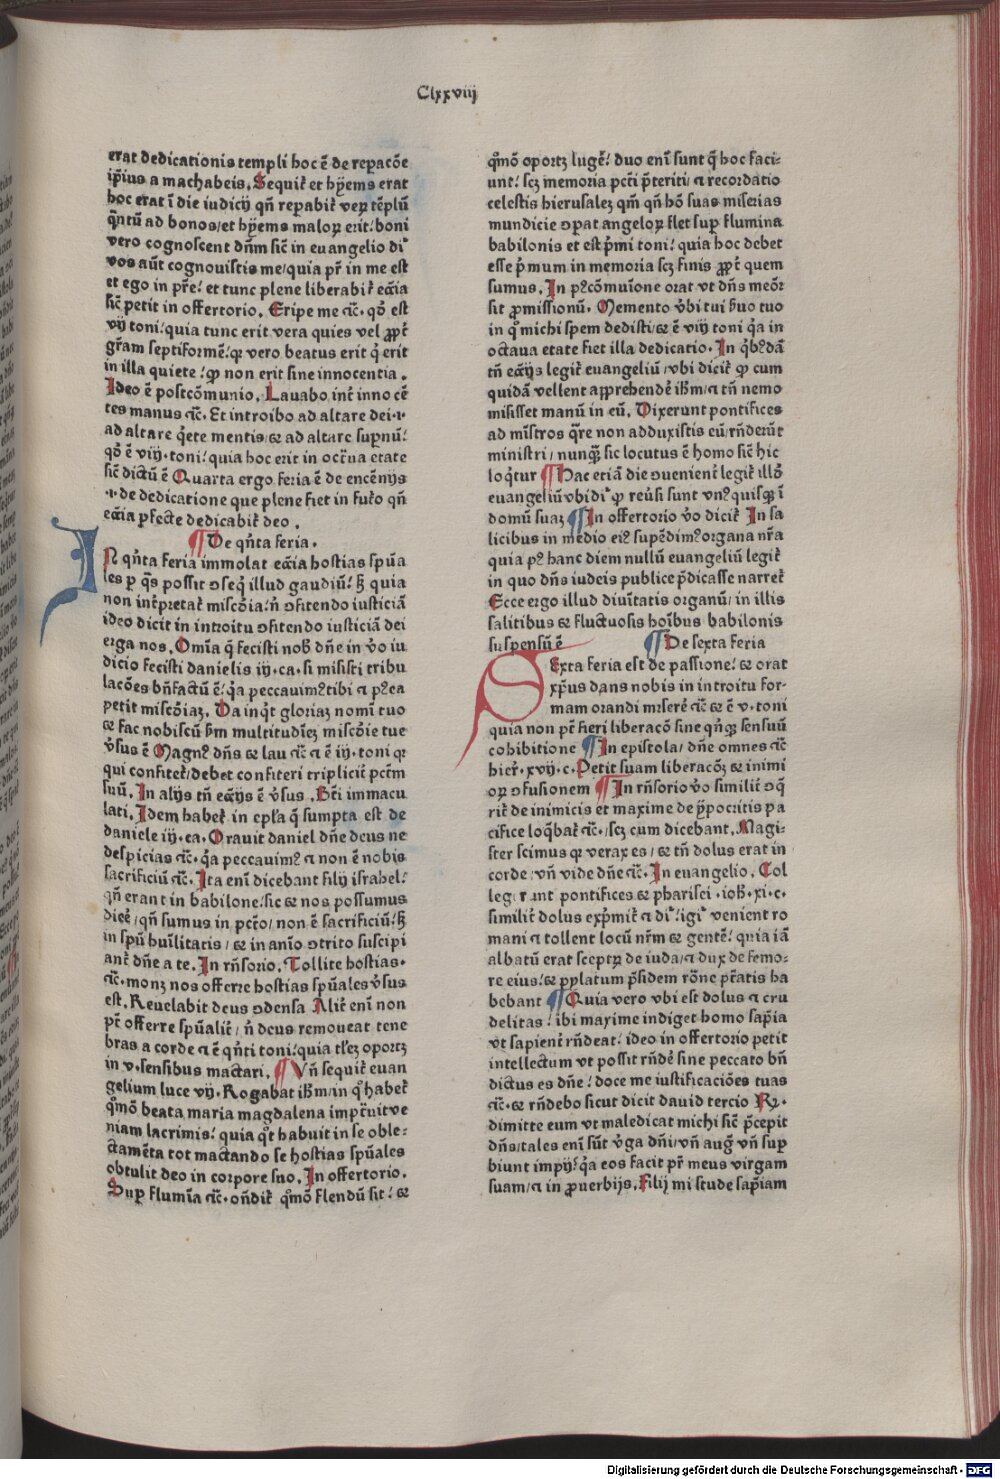 Clxxviij
erat dedicationis templi hoc ē de repacōe
ip̄ius a machabeis. Sequit̄ et hyems erat
hoc erat ī die iudicij qn̄ repabit̄ veꝝ tēplū
q̄ntū ad bonos/et hyems maloꝝ erit: boni
vero cognoscent dn̄m sic̄ in euangelio di͛
vos aūt cognouistis me/quia pr̄ in me est
et ego in pr̄e: et tunc plene liberabit̄ ecc̄ia
sic̄ petit in offertorio. Eripe me ⁊c̄. qd̓ est
vij toni: quia tunc erit vera quies vel ꝓpt̄
gr̄am septiformē: qꝛ vero beatus erit q̓ erit
in illa quiete: ꝙ non erit sine innocentia.
Ideo ē postcōmunio. Lauabo int̄ inno cē
tes manus ⁊c̄. Et introibo ad altare dei.i.
ad altare q̓ete mentis/⁊ ad altare supnū:
qd̓ ē viij.toni: quia hoc erit in octaua etate
sic̄ dictū ē Quarta ergo feria ē de encēnijs
.i. de dedicatione que plene fiet in futo̓ qn̄
ecc̄ia ꝑfecte dedicabit̄ deo.
¶ De qn̓ta feria.
IN qn̓ta feria immolat ecc̄ia hostias spūa
les ꝑ q̄s possit ↄseq̓ illud gaudiū: ꝫ quia
non int̓pretat̄ misc̓dia: n̄ ↄfitendo iusticiā
ideo dicit in introitu ↄfitendo iusticiā dei
erga nos. Om̄ia q̄ fecisti nob̓ dn̄e in v̓o iu
dicio fecisti danielis iij.ca. si misisti tribu
lacōes bn̄factū ē: q̓a peccauimꝰ tibi ⁊ pꝰea
petit misc̓diaꝫ. Da inq̓t gloriaꝫ nomī tuo
⁊ fac nobiscū s̓m multitudīeꝫ misc̓die tue
v̓sus ē Magnꝰ dn̄s ⁊ lau ⁊c̄ ⁊ ē iij.toni qꝛ
qui confitet̄/debet confiteri triplicit̄ pctm̄
suū. In alijs tn̄ ecc̄ijs ē v̓sus. Bt̄i immacu
lati. Idem habet̄ in epl̄a q̄ sumpta est de
daniele iij.ca. Orauit daniel dn̄e deus ne
despicias ⁊c̄. q̓a peccauimꝰ ⁊ non ē nobis
sacrificiū ⁊c̄. Ita enī dicebant filij israhel:
qn̄ erant in babilone: sic ⁊ nos possumus
dice̓/qn̄ sumus in pctō/non ē sacrificiū: ꝫ
in spū hūilitatis/⁊ in anīo ↄtrito suscipi
ant̄ dn̄e a te. In rn̄sorio. Tollite hostias.
⁊c̄. monꝫ nos offerre hostias spūales v̓sus
est. Reuelabit deus ↄdensa Alit̄ enī non
pt̄ offerre spūalit̄/n̄ deus remoueat tene
bras a corde ⁊ ē qn̓ti toni: quia tlēꝫ oportꝫ
in v.sensibus mactari. ¶ Vn̄ sequit̄ euan
gelium luce vij. Rogabat ih̄m/in q̓ habet̄
q̓mō beata maria magdalena impet̄uit ve
niam lacrimis: quia q̓t habuit in se oble⸗
ctamēta tot mactando se hostias spūales
obtulit deo in corpore suo. In offertorio.
Sup flumīa ⁊c̄. on̄dit̄ q̓mō flendū sit: ⁊
q̓mō oportꝫ luge̓: duo enī sunt q̄ hoc faci⸗
unt: scꝫ memoria pcti̓ p̄teriti/⁊ recordatio
celestis hierusaleꝫ qm̄ qn̄ hō suas miserias
mundicie ↄpat angeloꝝ flet sup flumina
babilonis et est p̓mi toni: quia hoc debet
esse p̓mum in memoria scꝫ finis ꝓpt̄ quem
sumus. In pꝰcōmuīone orat vt dn̄s meōr
sit ꝓmissionū. Memento v̓bi tui s̓uo tuo
in q̓ michi spem dedisti/⁊ ē viij toni q̓a in
octaua etate fiet illa dedicatio. In q̓bꝰdā
tn̄ ecc̄ijs legit̄ euangeliū/vbi dicit̄ ꝙ cum
quidā vellent apprehende̓ ih̄m/⁊ tn̄ nemo
misisset manū in eū. Dixerunt pontifices
ad mīstros q̄re non adduxistis eū/rn̄derūt
ministri/nunqꝫ sic locutus ē homo sic̄ hic
loq̓tur ¶ Hac etiā die ↄuenient̓ legit̄ illd̓
euangeliū vbi di͛ ꝙ reu̓si sunt vnꝰquisqꝫ ī
domū suaꝫ ¶ In offertorio v̓o dicit̄ In sa
licibus in medio eiꝰ supēdimꝰ organa nr̄a
quia pꝰ hanc diem nullū euangeliū legit̄
in quo dn̄s iudeis publice p̄dicasse narret̄
Ecce ergo illud diuītatis organū/in illis
salitibus ⁊ fluctuosis hoībus babilonis
suspensū ē ¶ De sexta feria
SExta feria est de passione: ⁊ orat
xp̄us dans nobis in introitu for⸗
mam orandi misere̓ ⁊c̄ ⁊ ē v.toni
quia non pt̄ fieri liberacō sine q̓nqꝫ sensuū
cohibitione ¶ In epistola/dn̄e omnes ⁊c̄
hier̄.xvij.c. Petit suam liberacōꝫ ⁊ inimi
oꝝ ↄfusionem ¶ In rn̄sorio v̓o similit̓ ↄq̄
rit̄ de inimicis et maxime de ypocritis pa
cifice loq̄bat̄ ⁊c̄./scꝫ cum dicebant. Magi⸗
ster scimus qꝛ verax es/⁊ tn̄ dolus erat in
corde/vn̄ vide dn̄e ⁊c̄. In euangelio. Col
legerunt pontifices ⁊ pharisei.ioh̄.xi.c.
similit̓ dolus exp̓mit̄ ⁊ di͛: igi͛ venient ro
mani ⁊ tollent locū nr̄m ⁊ gentē: quia iā
albatū erat sceptꝝ de iuda/⁊ dux de femo⸗
re eius: ⁊ pplatum p̄sidem rōne pt̄atis ha
bebant ¶ Quia vero vbi est dolus ⁊ cru
delitas: ibi maxime indiget homo sap̄ia
vt sapient̓ rn̄deat: ideo in offertorio petit
intellectum vt possit rn̄de̓ sine peccato bn̄
dictus es dn̄e: doce me iustificaciōes tuas
⁊c̄.⁊ rn̄debo sicut dicit dauid tercio Rꝝ.
dimitte eum vt maledicat michi sic̄ p̄cepit
dn̄s/tales enī sūt v̓ga dn̄i/vn̄ aug̓ vn̄ sup
biunt impij: q̓a eos facit pr̄ meus virgam
suam/⁊ in ꝓuerbijs. Filij mi stude sap̄iam
Digitalisierung gefördert durch die Deutsche Forschungsgemeinschaft - DFG